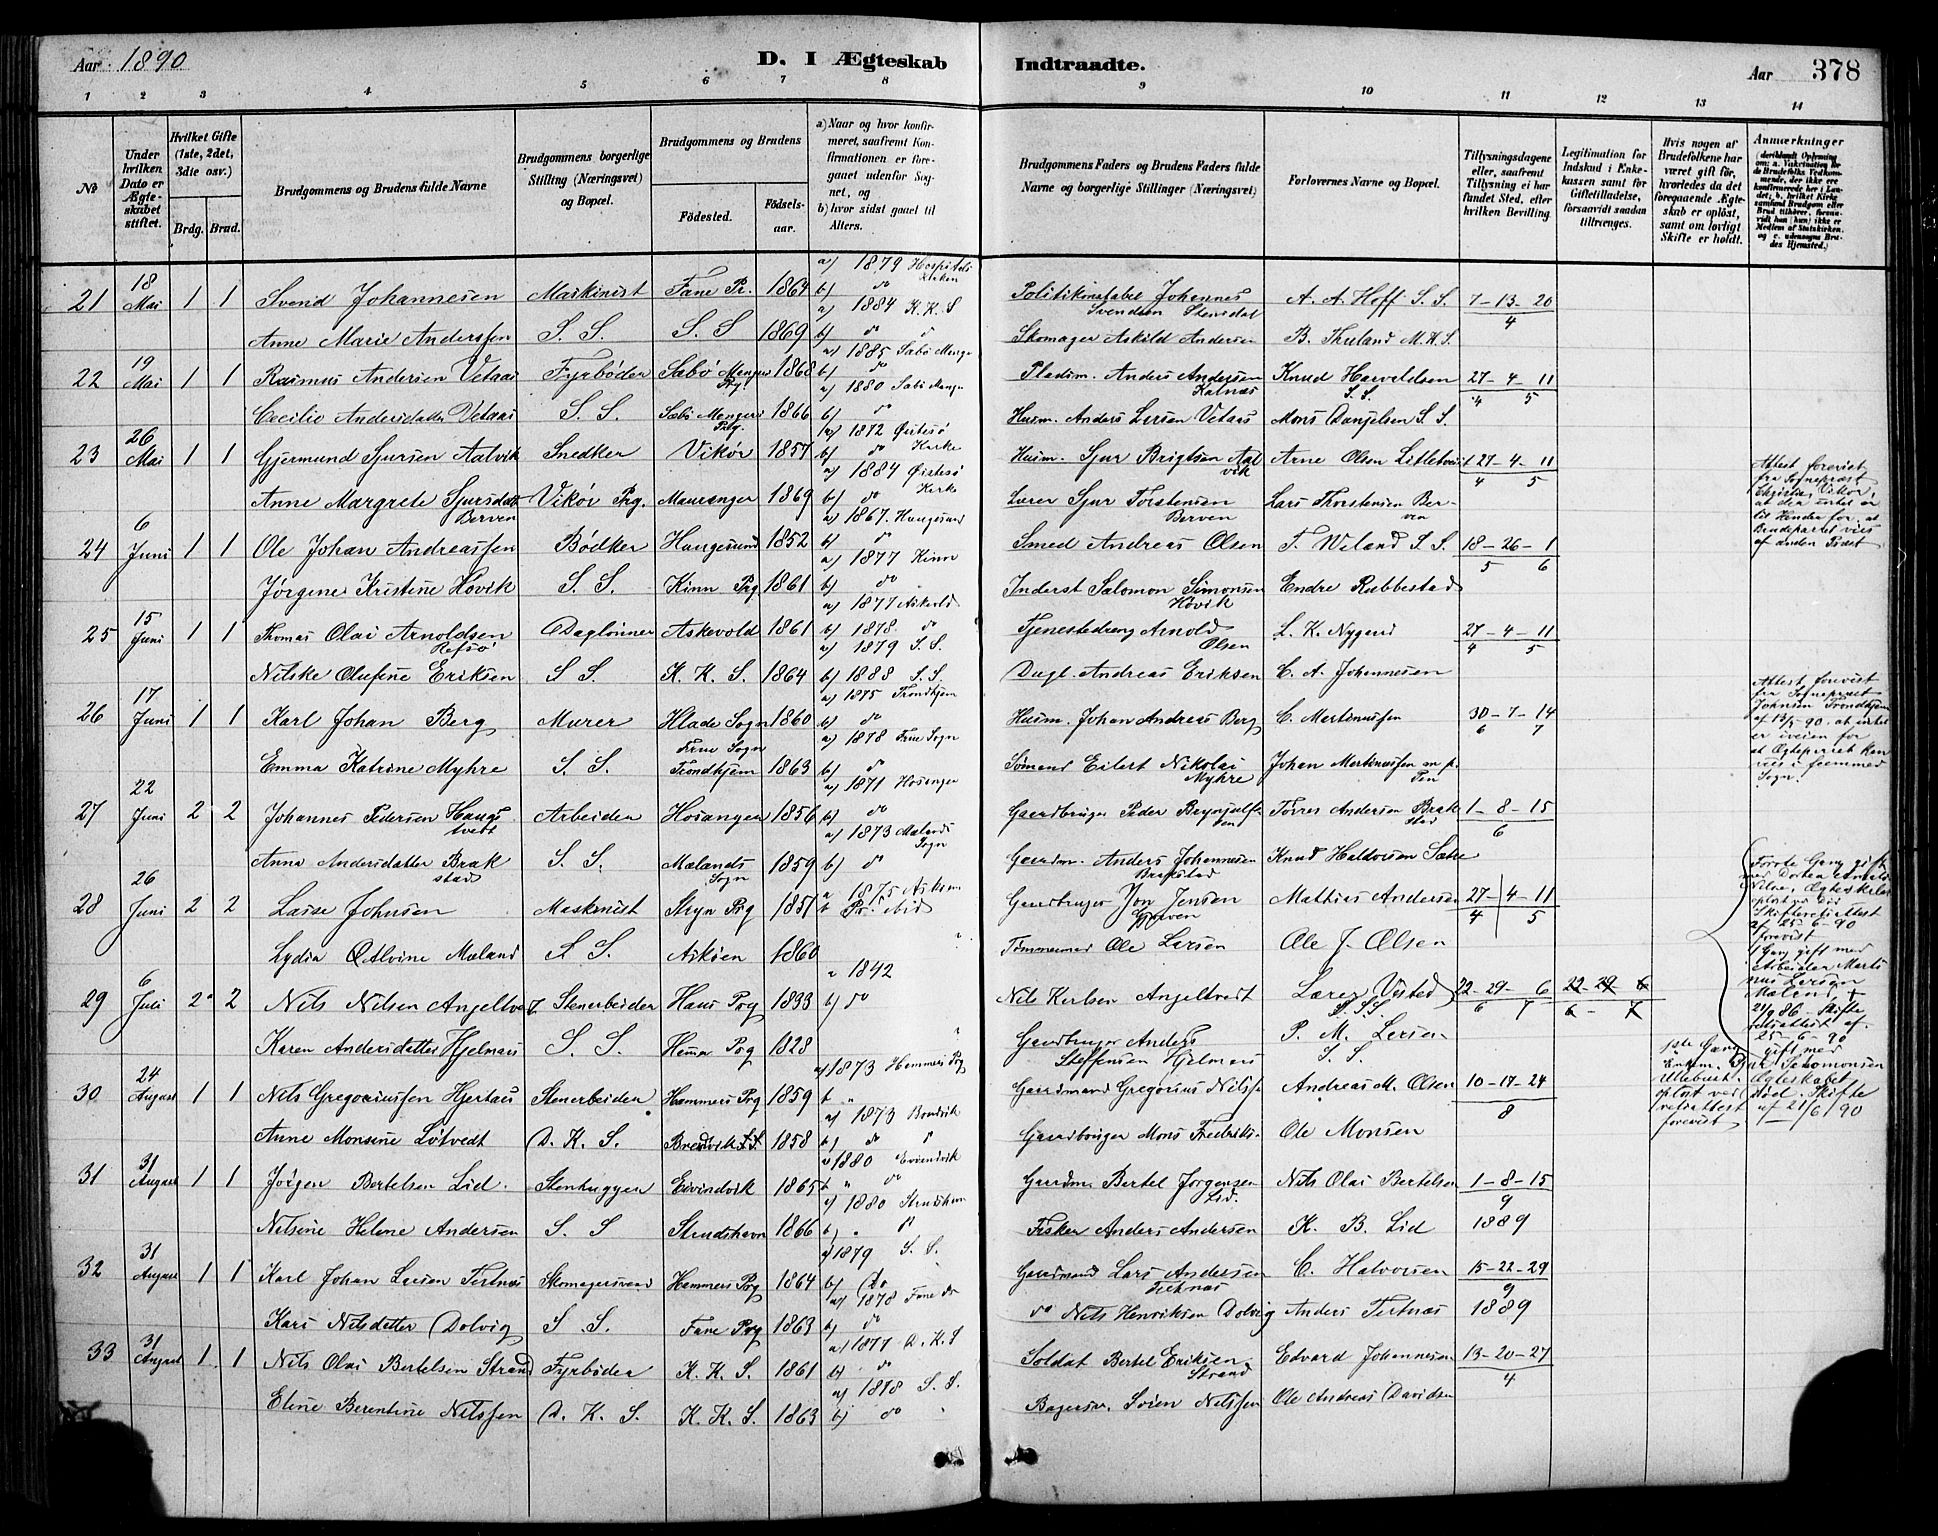 Aar 1890
D. I Ægteskab Indtraadte.
Aar 378
1 2 3 4 5 6 7 8 9 10 11 12 13 14
No
Under hvilken Dato er Ægteskabet stiftet.
Hvilket Gifte (1ste, 2det, 3die osv.)
Brdg. Brud.
Brudgommens og Brudens fulde Navne
Brudgommens borgerlige Stilling (Næringsvei) og Bopæl.
Brudgommens og Brudens
Födested. Födselsaar.
a) Naar og hvor konfirmeret, saafremt Konfirmationen er foregaaet udenfor Sognet, og
b) hvor sidst gaaet til Alters.
Brudgommens Faders og Brudens Faders fulde Navne og borgerlige Stillinger (Næringsvei)
Forlovernes Navne og Bopæl.
Tillysningsdagene eller, saafremt Tillysning ei har fundet Sted, efter hvilken Bevilling.
Legitimation for Indskud i Enkekassen samt for Giftetilladelse, forsaavidt saadan tiltrænges.
Hvis nogen af Brudefolkene har været gift før, hvorledes da det foregaaende Ægteskab er oplöst, samt om lovligt Skifte er holdt.
Anmærkninger
21 18 Mai 1 1 Svend Johannesen Maskinist Fane Pr. 1864 a) 1879 Hospitalskirken b) do Politikonstabel Johannes Svendsen Stensdal A. A. Hoff S. S. 7-13-20 4
Anne Marie Anderssen S. S. S. S 1869 a) 1884 K. K. S b) do Skomager Askild Andersen B. Thuland M.K.S.
22 19 Mai 1 1 Rasmus Andersen Vetaas Fyrbøder Sæbø Manger Prg 1868 a) 1885 Sæbø Manger b) do Pladsm. Anders Andersen Kalnæs Knud Harvaldsen S. S. 27-4-11 4 5
Cecilie Andersdatter Vetaas S. S. Sæbø Manger Prg. 1866 a) 1880 Sæbø Manger b) do Husm. Anders Larsen Vetaas Mons Danjelsen S. S.
23 26 Mai 1 1 Gjermund Sjursen Aalvik Snedker Vikør 1857 a) 1872 Østesø Kirke b) do Husm. Sjur Brigtsen Aalvik Arne Olsen 27-4-11 4 5
Anne Margrete Sjursdatter Berven Vikør Prg. Mauranger 1869 a) 1884 Østesø Kirke b) do Lærer Sjur Torstensen Berven Lars Thorstensen Berven
Attest forevist fra Sognepræst Vikør, at der intet er til Hinder for, at Brudeparret vies af anden Præst
24 6 Juni 1 1 Ole Johan Andreassen Bødker Haugesund 1852 a) 1867. Haugesund b) do Smed Andreas Olsen T. Wiland S. S. 18-26-1 5 6
Jørgine Kristine Hovik S. S. Kinn Prg 1861 a) 1877 Kinn b) do Inderst Salomon Simonsen Hovik Endre Rabbestad
25 15 Juni 1 1 Thomas Olai Arnoldsen Refsø Daglønner Askevold 1861 a) 1877 Askevold b) 1878. do Tjenestedreng Arnold Olsen L. K. Nygaard 27-4-11 4 5
Nilske Olufine Eriksen S S. K. K. S. 1864 a) 1879 S. S. b) 1888 S. S. Dagl. Andreas Eriksen C. A. Johannesen
26 17 Juni 1 1 Karl Johan Berg Murer Hlade Sogn 1860 a) 1875 Trondhjem b) do Husm. Johan Andreas Berg C. Martinussen 30-7-14 6 7
Emma Katrine Myhre S. S. Frue Sogn Trondhjem 1863 a) 1878 Frue Sogn b) do Sømand Eilert Nikolai Myhre Johan Martinussen m. p. Pen
Attest forevist fra Sognepræst Johnsen Trondhjem af 13/5-90. at intet er iveien for at Ægteparret kan vies i fremmed Sogn.
27 22 Juni 2 2 Johannes Pedersen Haugstvedt Arbeider Hosanger 1856 a) 1871 Hosanger b) do Gaardbruger Peder Brynjulfsen Torres Andersen Brakstad 1-8-15 6
Anna Andersdatter Brakstad S. S. Mælands Sogn 1859 a) 1873 Mælands Sogn b) do Gaardm. Anders Johannesen Brakstad Knud Haldorsen Sætre
28 26 Juni 2 2 Lasse Johnsen Maskinist Stryn Prg 1851 Gaardbruger Jon Jensen Mathias Andersen 27-4-11 4 5
Lydia Øtlvine Mæland S S. Askøen 1860 a 1875 Askøen Tømmermd Ole Larsen Ole J. Olsen
Første Gang gift med Dortea Ægteskabet opløst ved Død Skifteretsattest af 25-6-90 forevist 1 Gang gift med Arbeider Martinus Larsen Mæland + 21/9 86. Skifteretsattest af. 25-6-90
29 6 Juli 2 2 Nils Nilsen Angeltvedt Stenarbeider Haus Prg 1833 1842 b) do Nils Karlsen Angeltvedt Lærer Visted S. S. 22-29-6 6 7 22-29-6 6-7
Karen Andersdatter Hjelmaas S. S. Hammer Prg 1828 Gaardbruger Anders Steffensen Hjelmaas P. M. Larsen S. S.
1ste Gang gift med Enkem. Sjur Salomonsen Ullebust. Ægteskabet opløst ved Død. Skifteretsattest af 21/6/90 forevist
30 24 August 1 1 Nils Gregoriussen Hjertaas Stenarbeider Hammers Prg 1859 a) 1873 Hammers Prg b " Gaardmand Gregorius Nilss. Andreas M. Olsen 10-17-24 8
Anne Monsine Løtvedt D. K. S. Bredvik 1858 a) 1873 Bredvik b) do Gaardbruger Mons Fredriks. Ole Monsen
31 31 August 1 1 Jørgen Bertelsen Lid. Stenhugger Evindvik 1865 a 1880 Evindvik b " do Gaardm. Bertel Jørgensen Lid. Nils Olai Bertelsen 1-8-15 9
Nilsine Helene Andersen S. S Strudshavn 1866 a) 1880 Strudshavn b) " Fisker Anders Andersen K. B. Lid 1889
32 31 August 1 1 Karl Johan Larsen Tertnæs Skomagersvend Hammers Prg 1864 a) 1879 S. S. b) Do Gaardmand Lars Andersen Tertnæs C. Halvorsen 15-22-29 9
Kari Nilsdatter Dolvig S. S. Fane Prg 1863 a) 1878 Fane do b) do do Nils Henriksen Dolvig Anders Tertnæs 1889
33 31 August 1 1 Nils Olai Bertelsen Strand Fyrbøder K. K. S. 1861 a) 1877 D. K. S b) do Soldat Bertel Eriksen Strand Edvard Johannesen 13-20-27 4
Eline Berentine Nilssen D. K. S. K. K. S. 1863 a) 1878 S. S. b) do Bagersv. Søren Nilssen Ole Andreas Davidsen